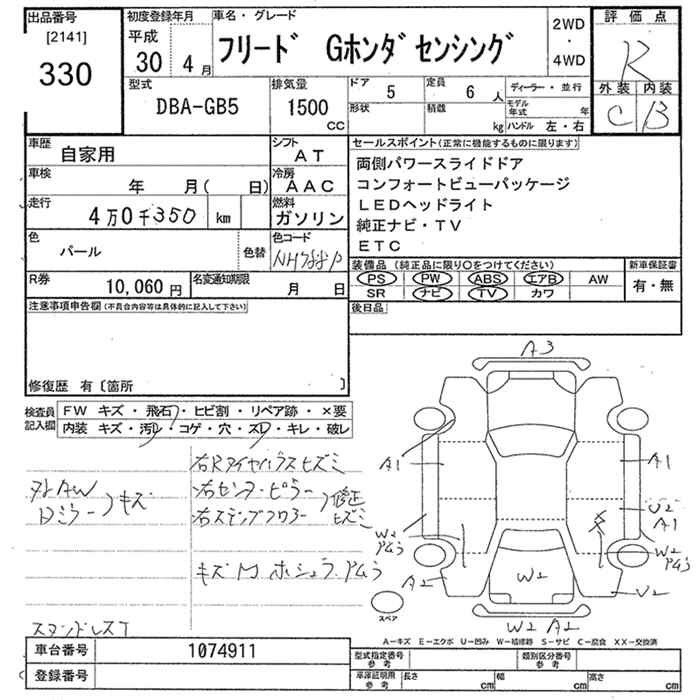 出品番号
[2141]
330
初度登録年月
平成
30 年 4 月
車名・グレード
フリード Gホンダセンシング
2WD
・
4WD
評価点
R
外装 内装
C B
型式
DBA-GB5
排気量
1500
CC
ドア 5
定員 6 人
形状
積載 kg
ディーラー・並行
モデル年式 年
ハンドル 左・右
車歴 自家用
シフト AT
車検 年 月( 日)
冷房 AAC
走行 4万0千350 km
燃料 ガソリン
色 パール 色替
色コード NH788P
R券 10,060 円
名変通知期限 月 日
セールスポイント(正常に機能するものに限ります)
両側パワースライドドア
コンフォートビューパッケージ
LEDヘッドライト
純正ナビ・TV
ETC
装備品 (純正品に限り○をつけてください)
PS PW ABS エアB AW
SR ナビ TV カワ
新車保証書
有・無
後日品
注意事項申告欄(不具合内容等は具体的に記入して下さい)
修復歴 有〔箇所 〕
検査員記入欄
FW キズ・飛石・ヒビ割・リペア跡・×要
内装 キズ・汚レ・コゲ・穴・スレ・キレ・破レ
右Rタイヤハウスヒズミ
右センターピラー
右ステップフロアー
修正ヒズミ
AW
Dミラー
キズ
スタンドレスT
A3
A1
A1
U2
A1
W2
W2
A2
W2
U2
W2 A2
スペア
A-キズ E-エクボ U-凹み W-補修跡 S-サビ C-腐食 XX-交換済
車台番号 1074911
登録番号
型式指定番号 参考
類別区分番号 参考
車庫証明用 参考
長さ cm
幅 cm
高さ cm